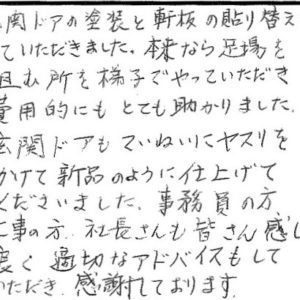 関ドアの塗装と軒板の貼り替え
ていただきました。本来なら足場を
組む所を梯子でやっていただき
費用的にもとても助かりました。
玄関ドアもていねいにヤスリを
かけて新品のように仕上げて
くださいました。事務員の方
工事の方、社長さんも皆さん感じ
良く適切なアドバイスもして
いただき、感謝しております。